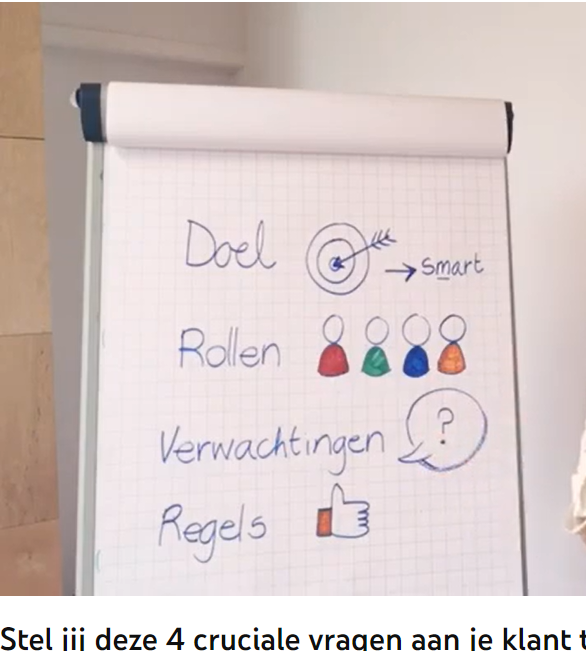 Doel
→ Smart
Rollen
Verwachtingen ?
Regels
Stel jij deze 4 cruciale vragen aan je klant